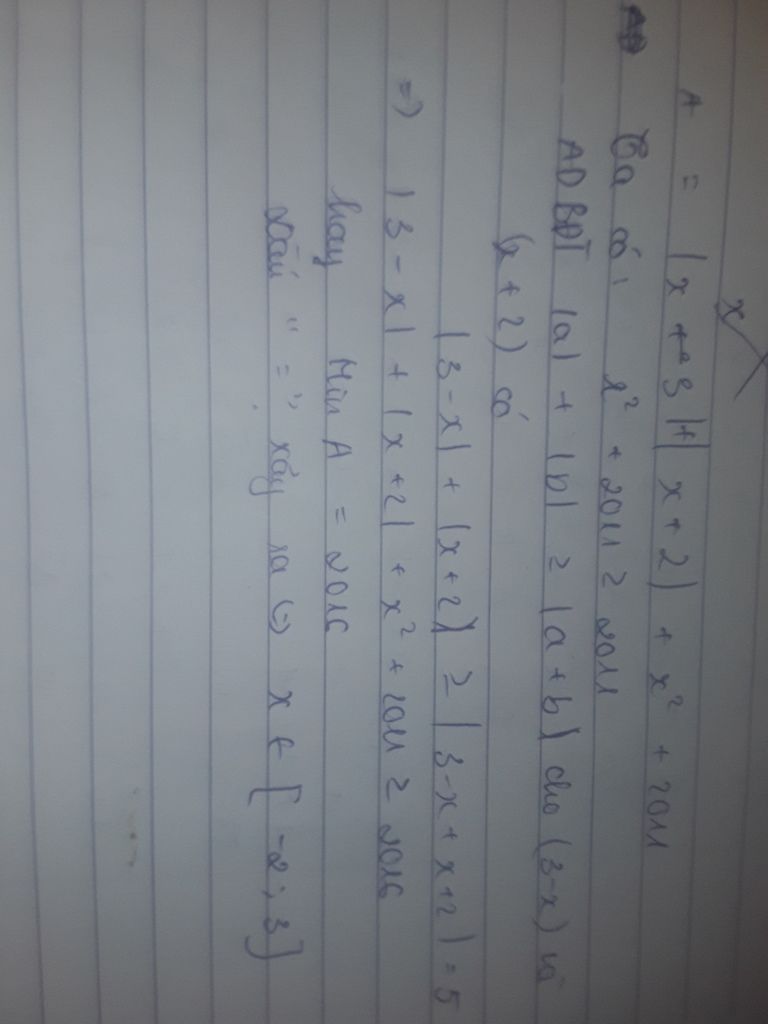 x
A = |x + 3| + |x + 2| + x² + 2011
Ta có, x² + 2011 ≥ 2011
AD BĐT |a| + |b| ≥ |a + b| cho (3-x) và
(x + 2) có
|3 - x| + |x + 2| ≥ |3 - x + x + 2| = 5
=> |3 - x| + |x + 2| + x² + 2011 ≥ 2016
hay Min A = 2016
dấu "=" xảy ra (=) x ∈ [-2; 3]